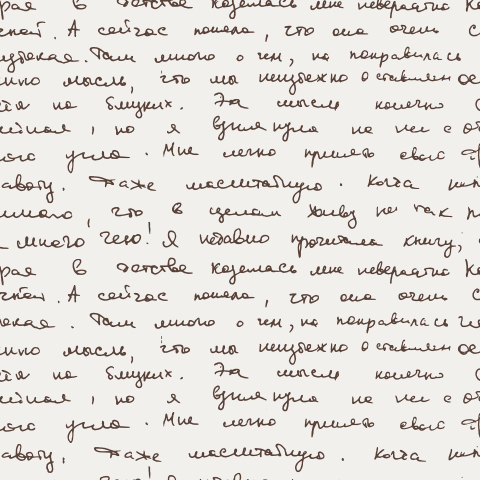 рая в детстве казалась мне невероятно
. А сейчас поняла, что она очень
. Там много о чем, но понравилась
мысль, что мы неизбежно оставляем
на близких. Эта мысль конечно
, но я взглянула на нее с
угла. Мне легко принять свою
. Даже масштабную. Когда
, что в целом живу не так
много чего! Я недавно прочитала книгу,
рая в детстве казалась мне невероятно
. А сейчас поняла, что она очень
. Там много о чем, но понравилась
мысль, что мы неизбежно оставляем
на близких. Эта мысль конечно
, но я взглянула на нее с
угла. Мне легко принять свою
. Даже масштабную. Когда